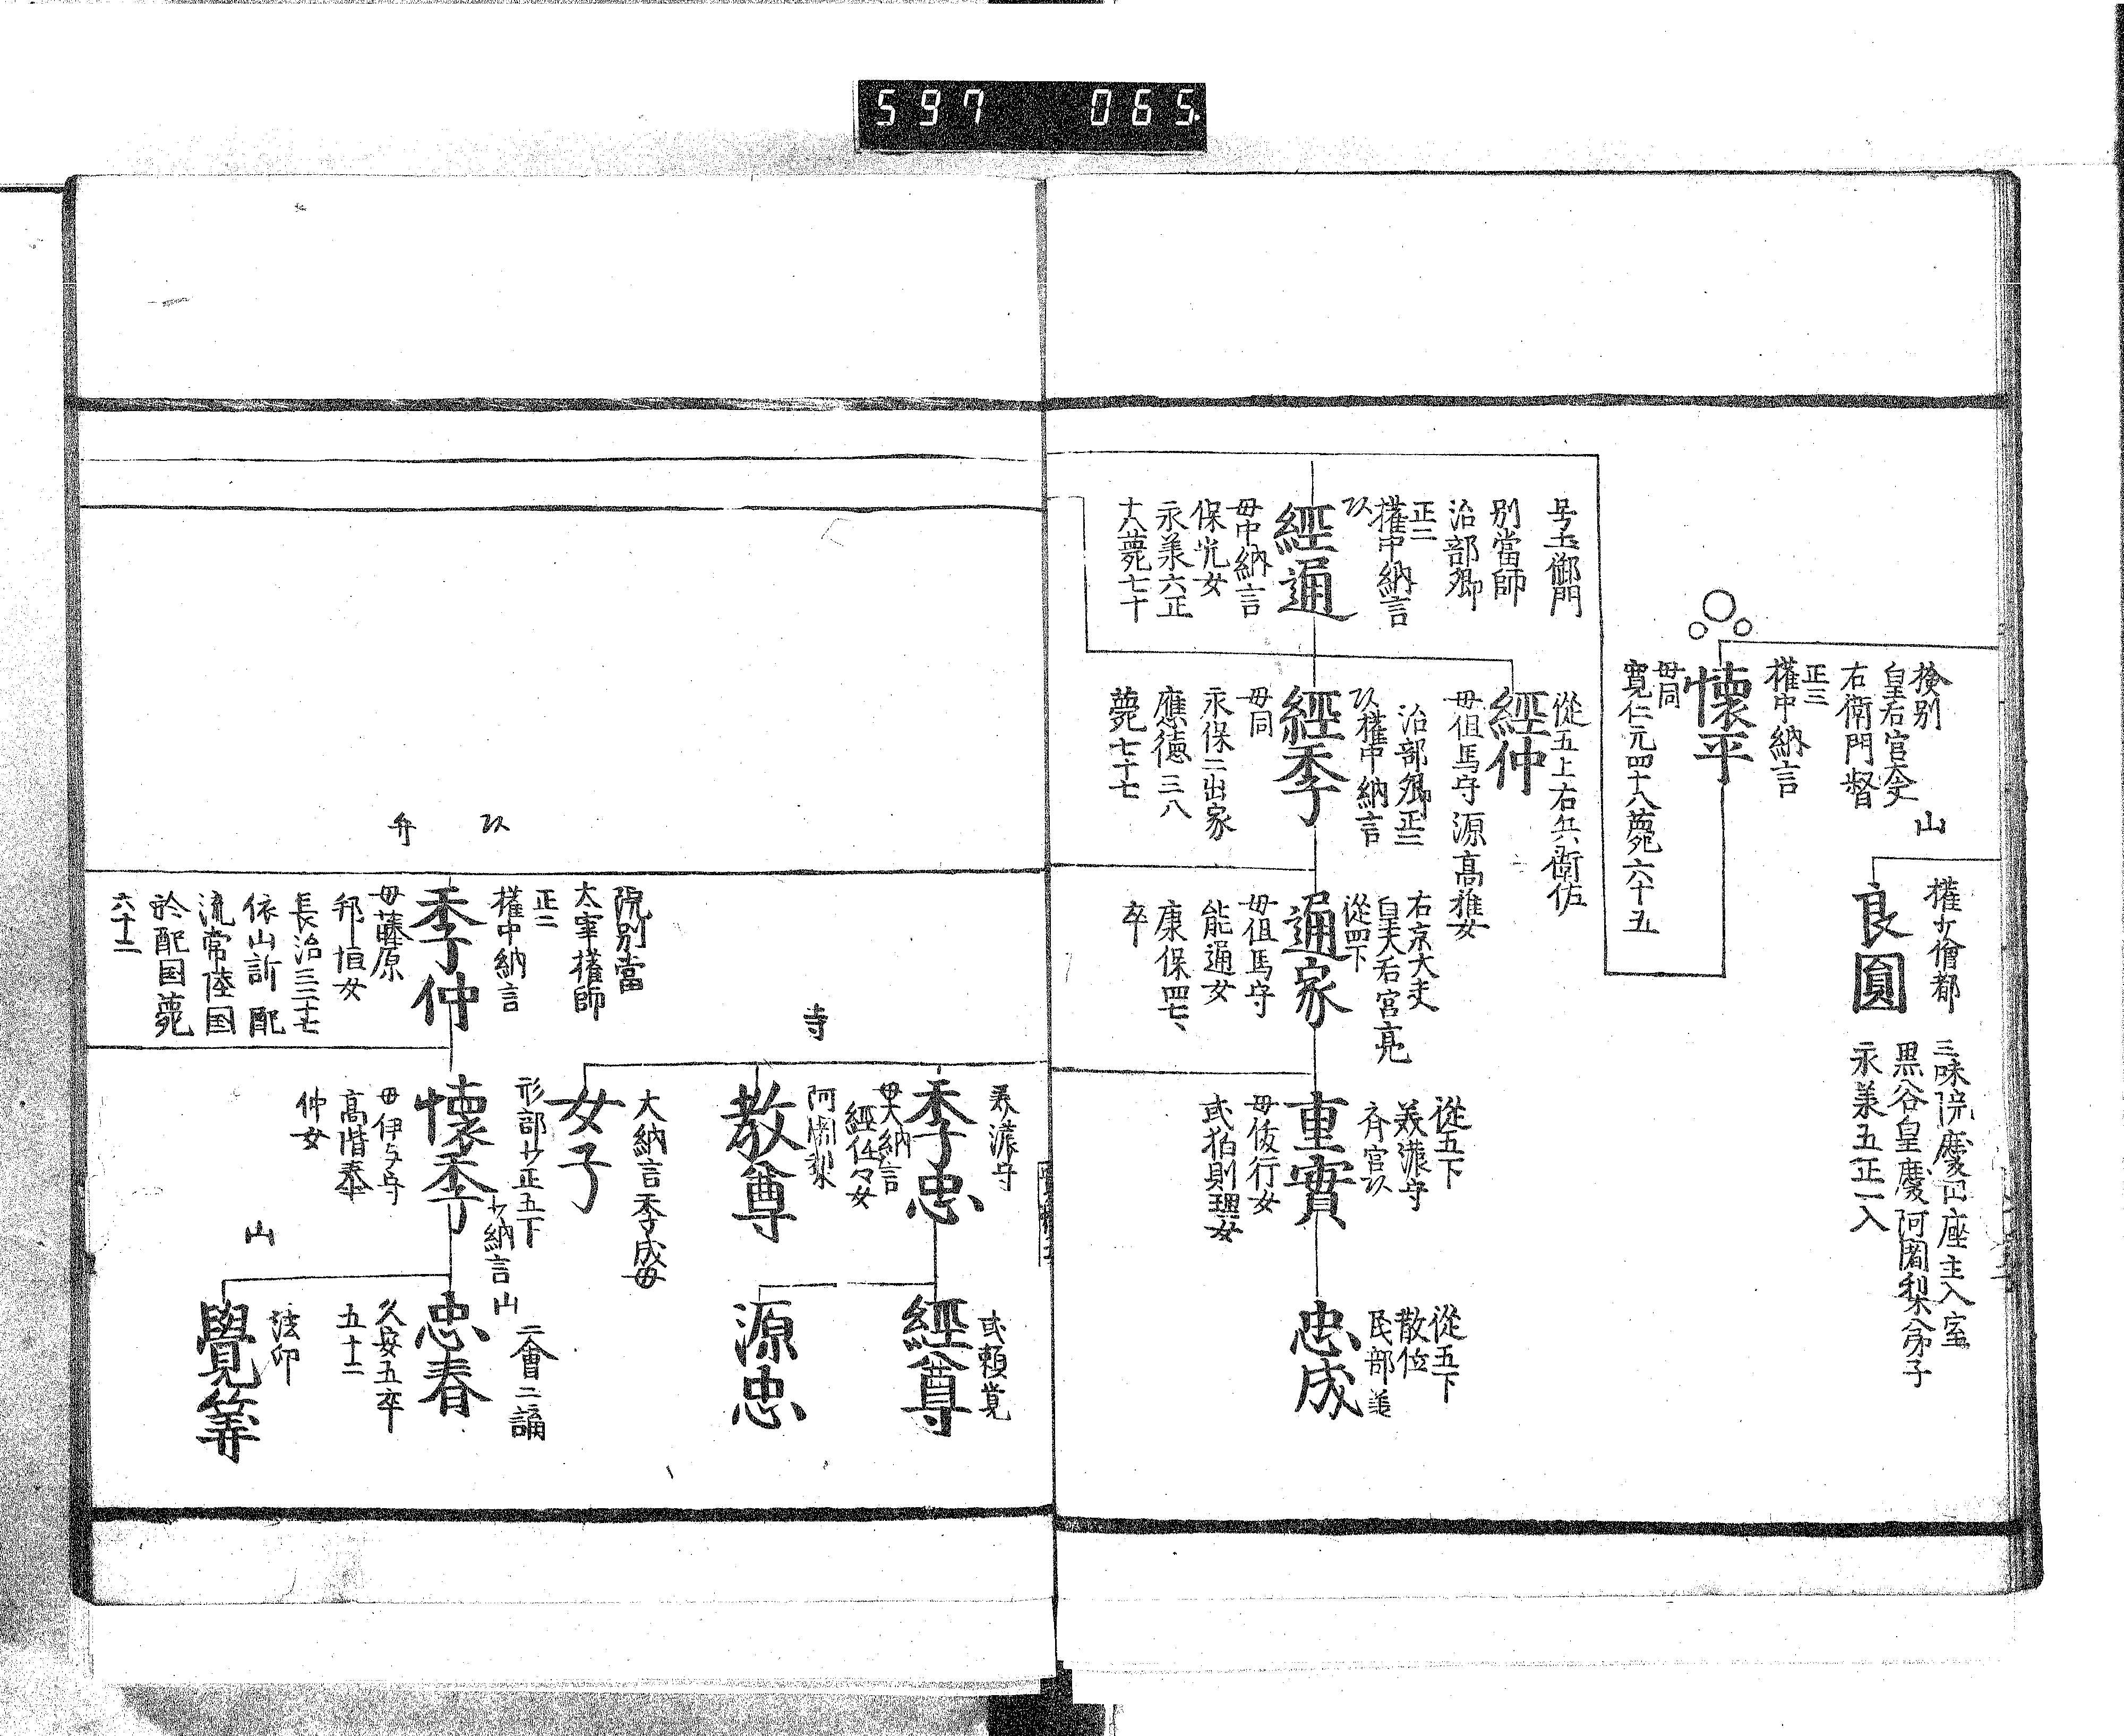 597 065
山
權少僧都
良圓
三昧院慶命座主入室
黒谷皇慶阿闍梨弟子
永美五正一入
檢別
皇后宮大夫
右衛門督
正三
權中納言
懐平
母同
寛仁元四十八薨六十五
号土御門
別當師
治部卿
正二
權中納言
經通
母中納言
保光女
永美六正
十八薨七十
從五上右兵衛佐
經仲
母但馬守源高雅女
治部卿正二
權中納言
經季
母同
永保二出家
應徳三八
薨七十七
右京大夫
皇大后宮亮
從四下
通家
母但馬守
能通女
康保四七、
卒
從五下
美濃守
斉宮
重實
母俊行女
或伯則理女
從五下
散位
民部
忠成
美濃守
季忠
母大納言
經任々女
寺
阿闍梨
教尊
大納言季成母
女子
或頼覚
經尊
源忠
院別當
太宰權師
正二
權中納言
季仲
弁
母藤原
邦恒女
長治三三十七
依山訴配
流常陸国
於配国薨
六十二
形部少正五下
少納言
懐季
母伊与守
高階泰
仲女
山
二會二講
忠春
久安五卒
五十二
山
法印
覺等